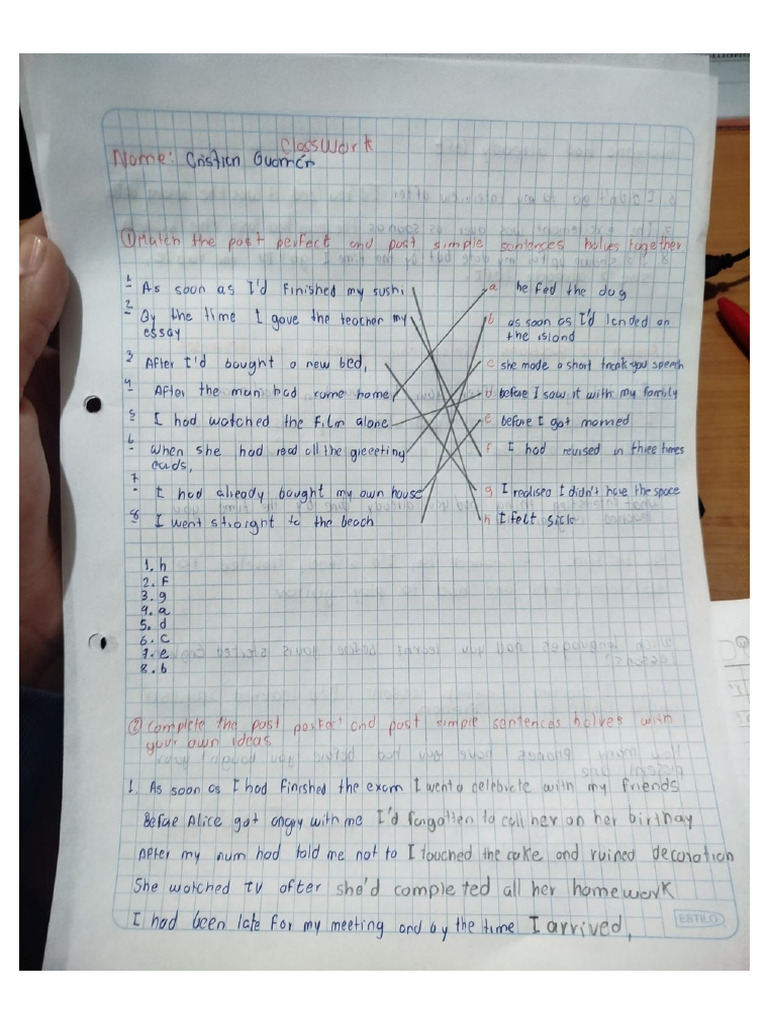 ClassWork
Name: Cristian Guamán
① Match the past perfect and past simple sentences halves together
1 As soon as I'd finished my sushi
a he fed the dog
2 By the time I gave the teacher my
essay
b as soon as I'd landed on
the island
3 After I'd bought a new bed,
c she made a short thank you speech
4 After the man had come home,
d before I saw it with my family
5 I had watched the film alone
e before I got married
6 When she had read all the greeeting
cads,
f I had revised in three times
7 I had already bought my own house
g I realised I didn't have the space
8 I went straight to the beach
h I felt sick
1. h
2. F
3. g
4. a
5. d
6. c
7. e
8. b
② Complete the past perfect and past simple sentences halves with
your own ideas
1. As soon as I had finished the exam I went a celebrate with my friends
Before Alice got angry with me I'd forgotten to call her on her birthay
After my mum had told me not to I touched the cake and ruined decoration
She watched TV after she'd completed all her homework
I had been late for my meeting and by the time I arrived,
ESTILO